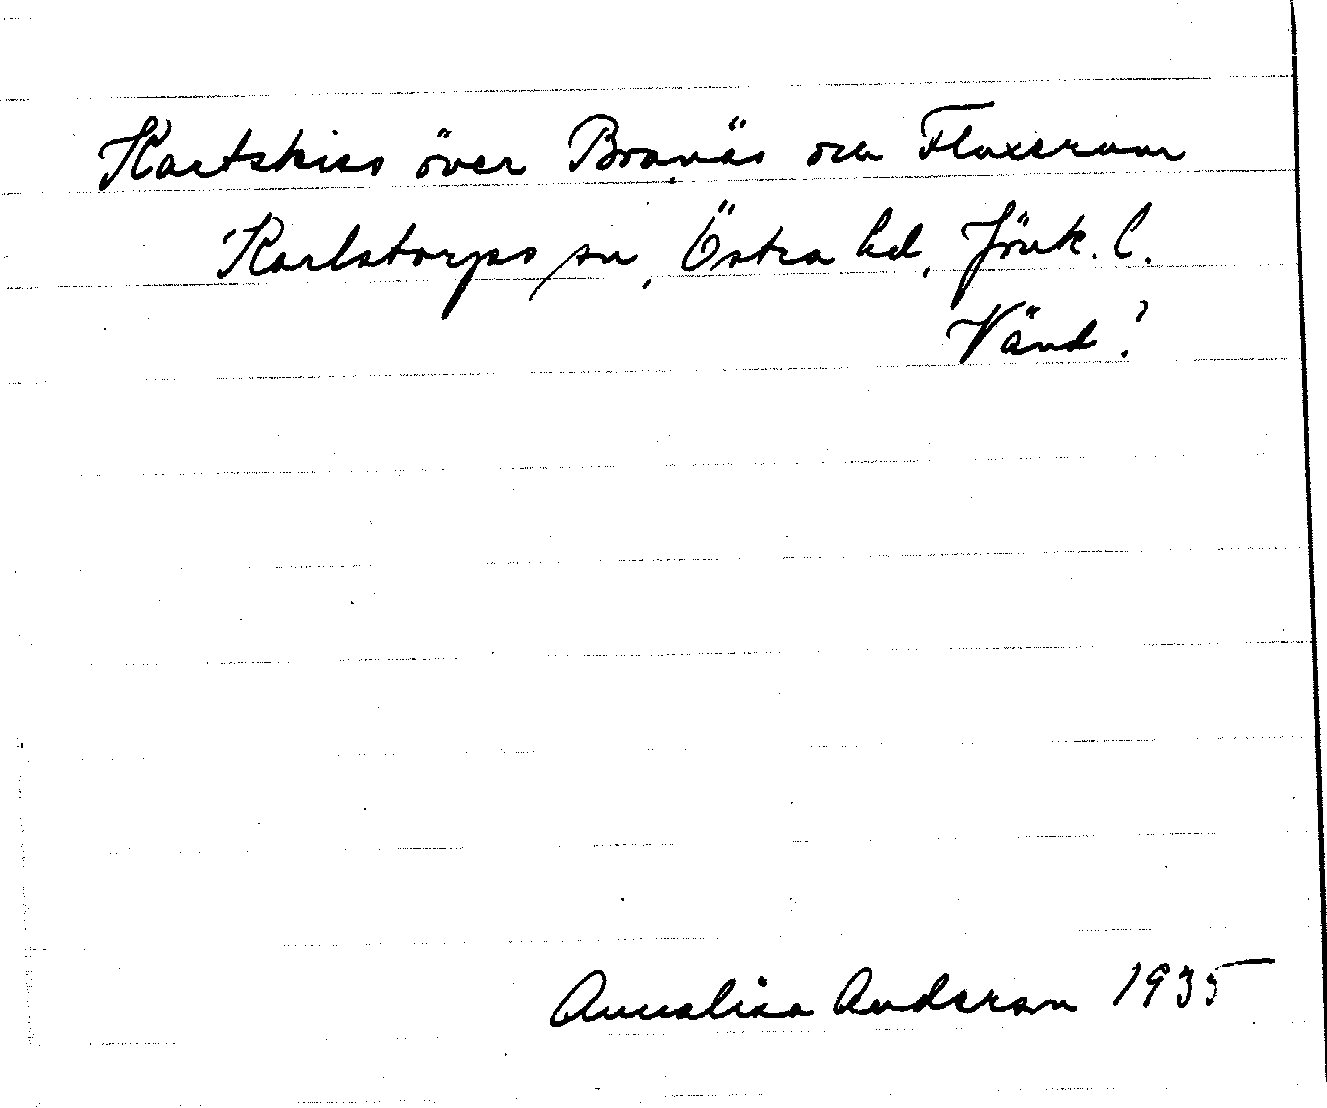 Kartskiss över Branäs och Flaxeram
Karlstorps sn, Östra hd, Jönk. l.
Vänd!
Annalisa Anderson 1935